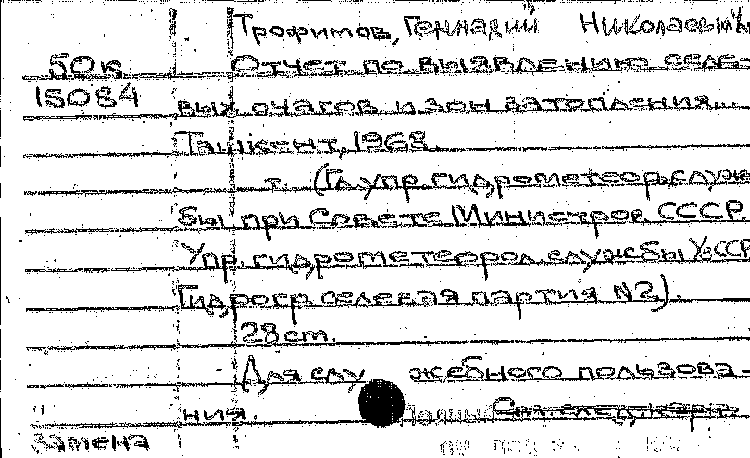 Трофимов, Геннадий Николаевич
50к Отчет по выявлению селе-
15084 вых очагов и зон затопления...
Ташкент, 1968.
т. (Гл. упр. гидрометеор. служ
бы при Совете Министров СССР
Упр. гидрометеорол. службы УзССР
Гидрогр. селевая партия N2).
28 cm.
(Для слу жебного пользова-
ния.
Замена